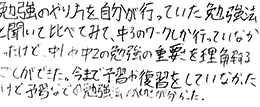 勉強のやり方を自分が行っていた勉強法
と聞いて比べてみて、中3のワークしか行っていなか
ったけど、中1や中2の勉強の重要さを理解する
ことができた。今まで予習や復習をしていなかった
けど予習などの勉強法が分かった。